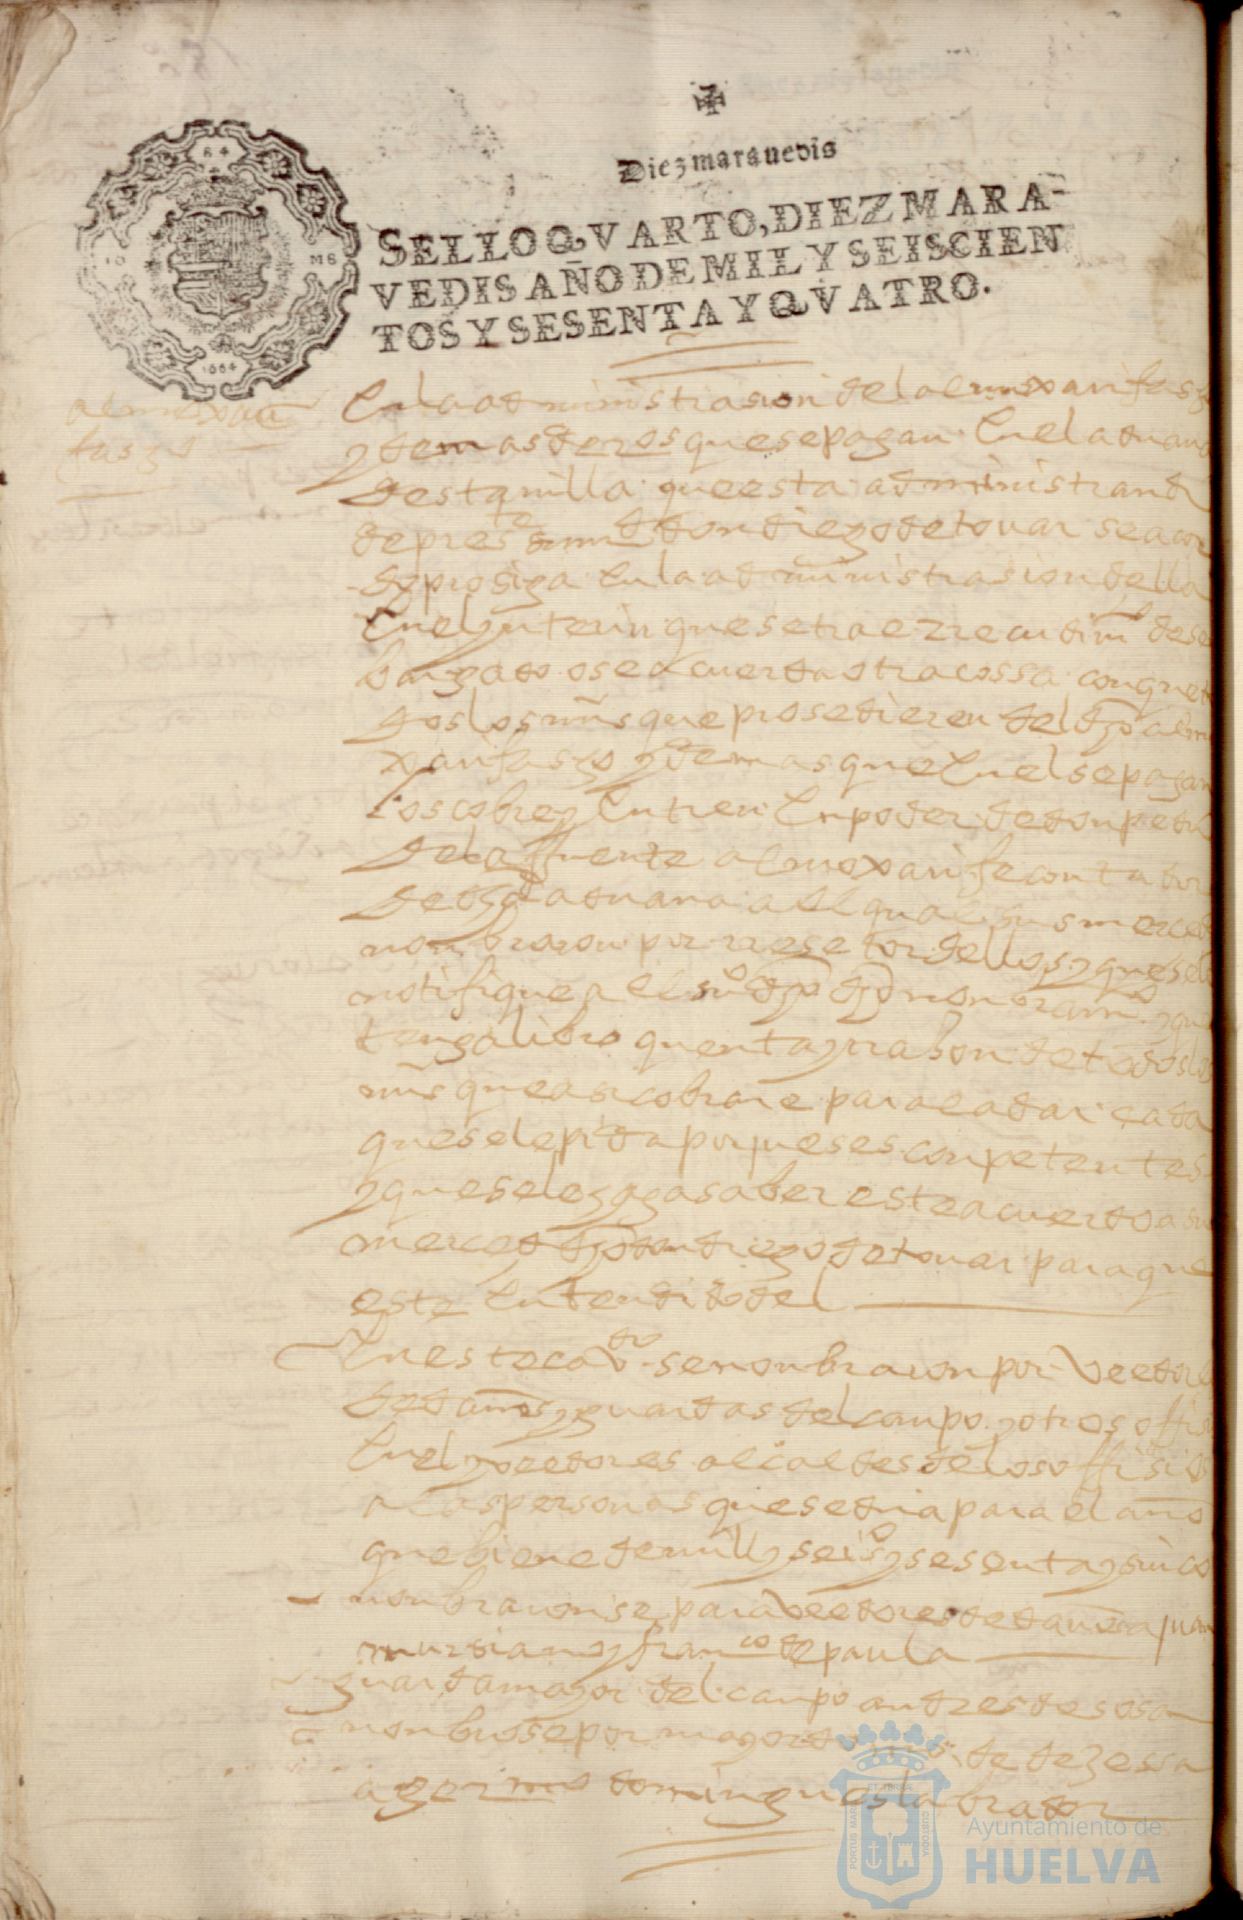 Diez maravedis
SELLO QVARTO, DIEZ MARA-
VEDIS AÑO DE MIL Y SEISCIEN
TOS Y SESENTA Y QVATRO.
64
10
MS
1664
almoxari
fasgo
En la administrasion del almoxarifasgo
y demas deros que se pagan En el aduana
desta villa que esta administrando
de presente don diego de tovar se acor
do prosiga En la administrasion della
En el ynterin que se trae
bargado o se acuerda otra cossa con que to
dos los mrs que prosedieren del dho almo
xarifasgo y demas que En el se pagan
los cobre y Entren En poder de don pedro
de la fuente almoxarife contador
de dha aduana al qual sus mercedes
nombraron por resetor dellos y que se le
notifique al su dho dho nonbramo y que
tenga libro quenta y rason de todos los
mrs que asi cobrare para la dar cada
que se le pida por jueses conpetentes
y que se le haga saber este acuerdo a su
merced dho don diego de tovar para que
este Entendido del
En este cavdo se nonbraron por Veedores
de daños y guardas del canpo y otros offisios
En el y veedores alcaldes de los offisios
a las personas que se dira para el año
que biene de mill y seiso y sesenta y sinco
nonbraronse para veedores de daños a juan
mursiano y franco de paula
guarda mayor del canpo andres de sosa
nonbrose por mayordomo de dehessa
a germo domingues labrador
PORTUS MARIS
ET TERRAE
CUSTODIA
Ayuntamiento de
HUELVA